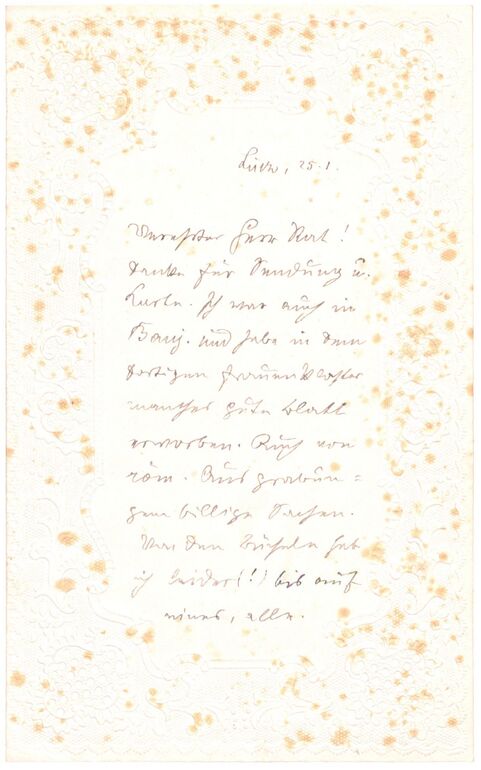 25.1.
Verehrter Herr Rat!
Danke für Sendung u.
Karte. Ich war auch in
und habe in dem
dortigen Frauenkloster
manches gute Blatt
erworben. Auch von
röm. Ausgrabun=
gen billige Sachen.
Von den Bücheln hab
ich leider (!) bis auf
eines, alle.